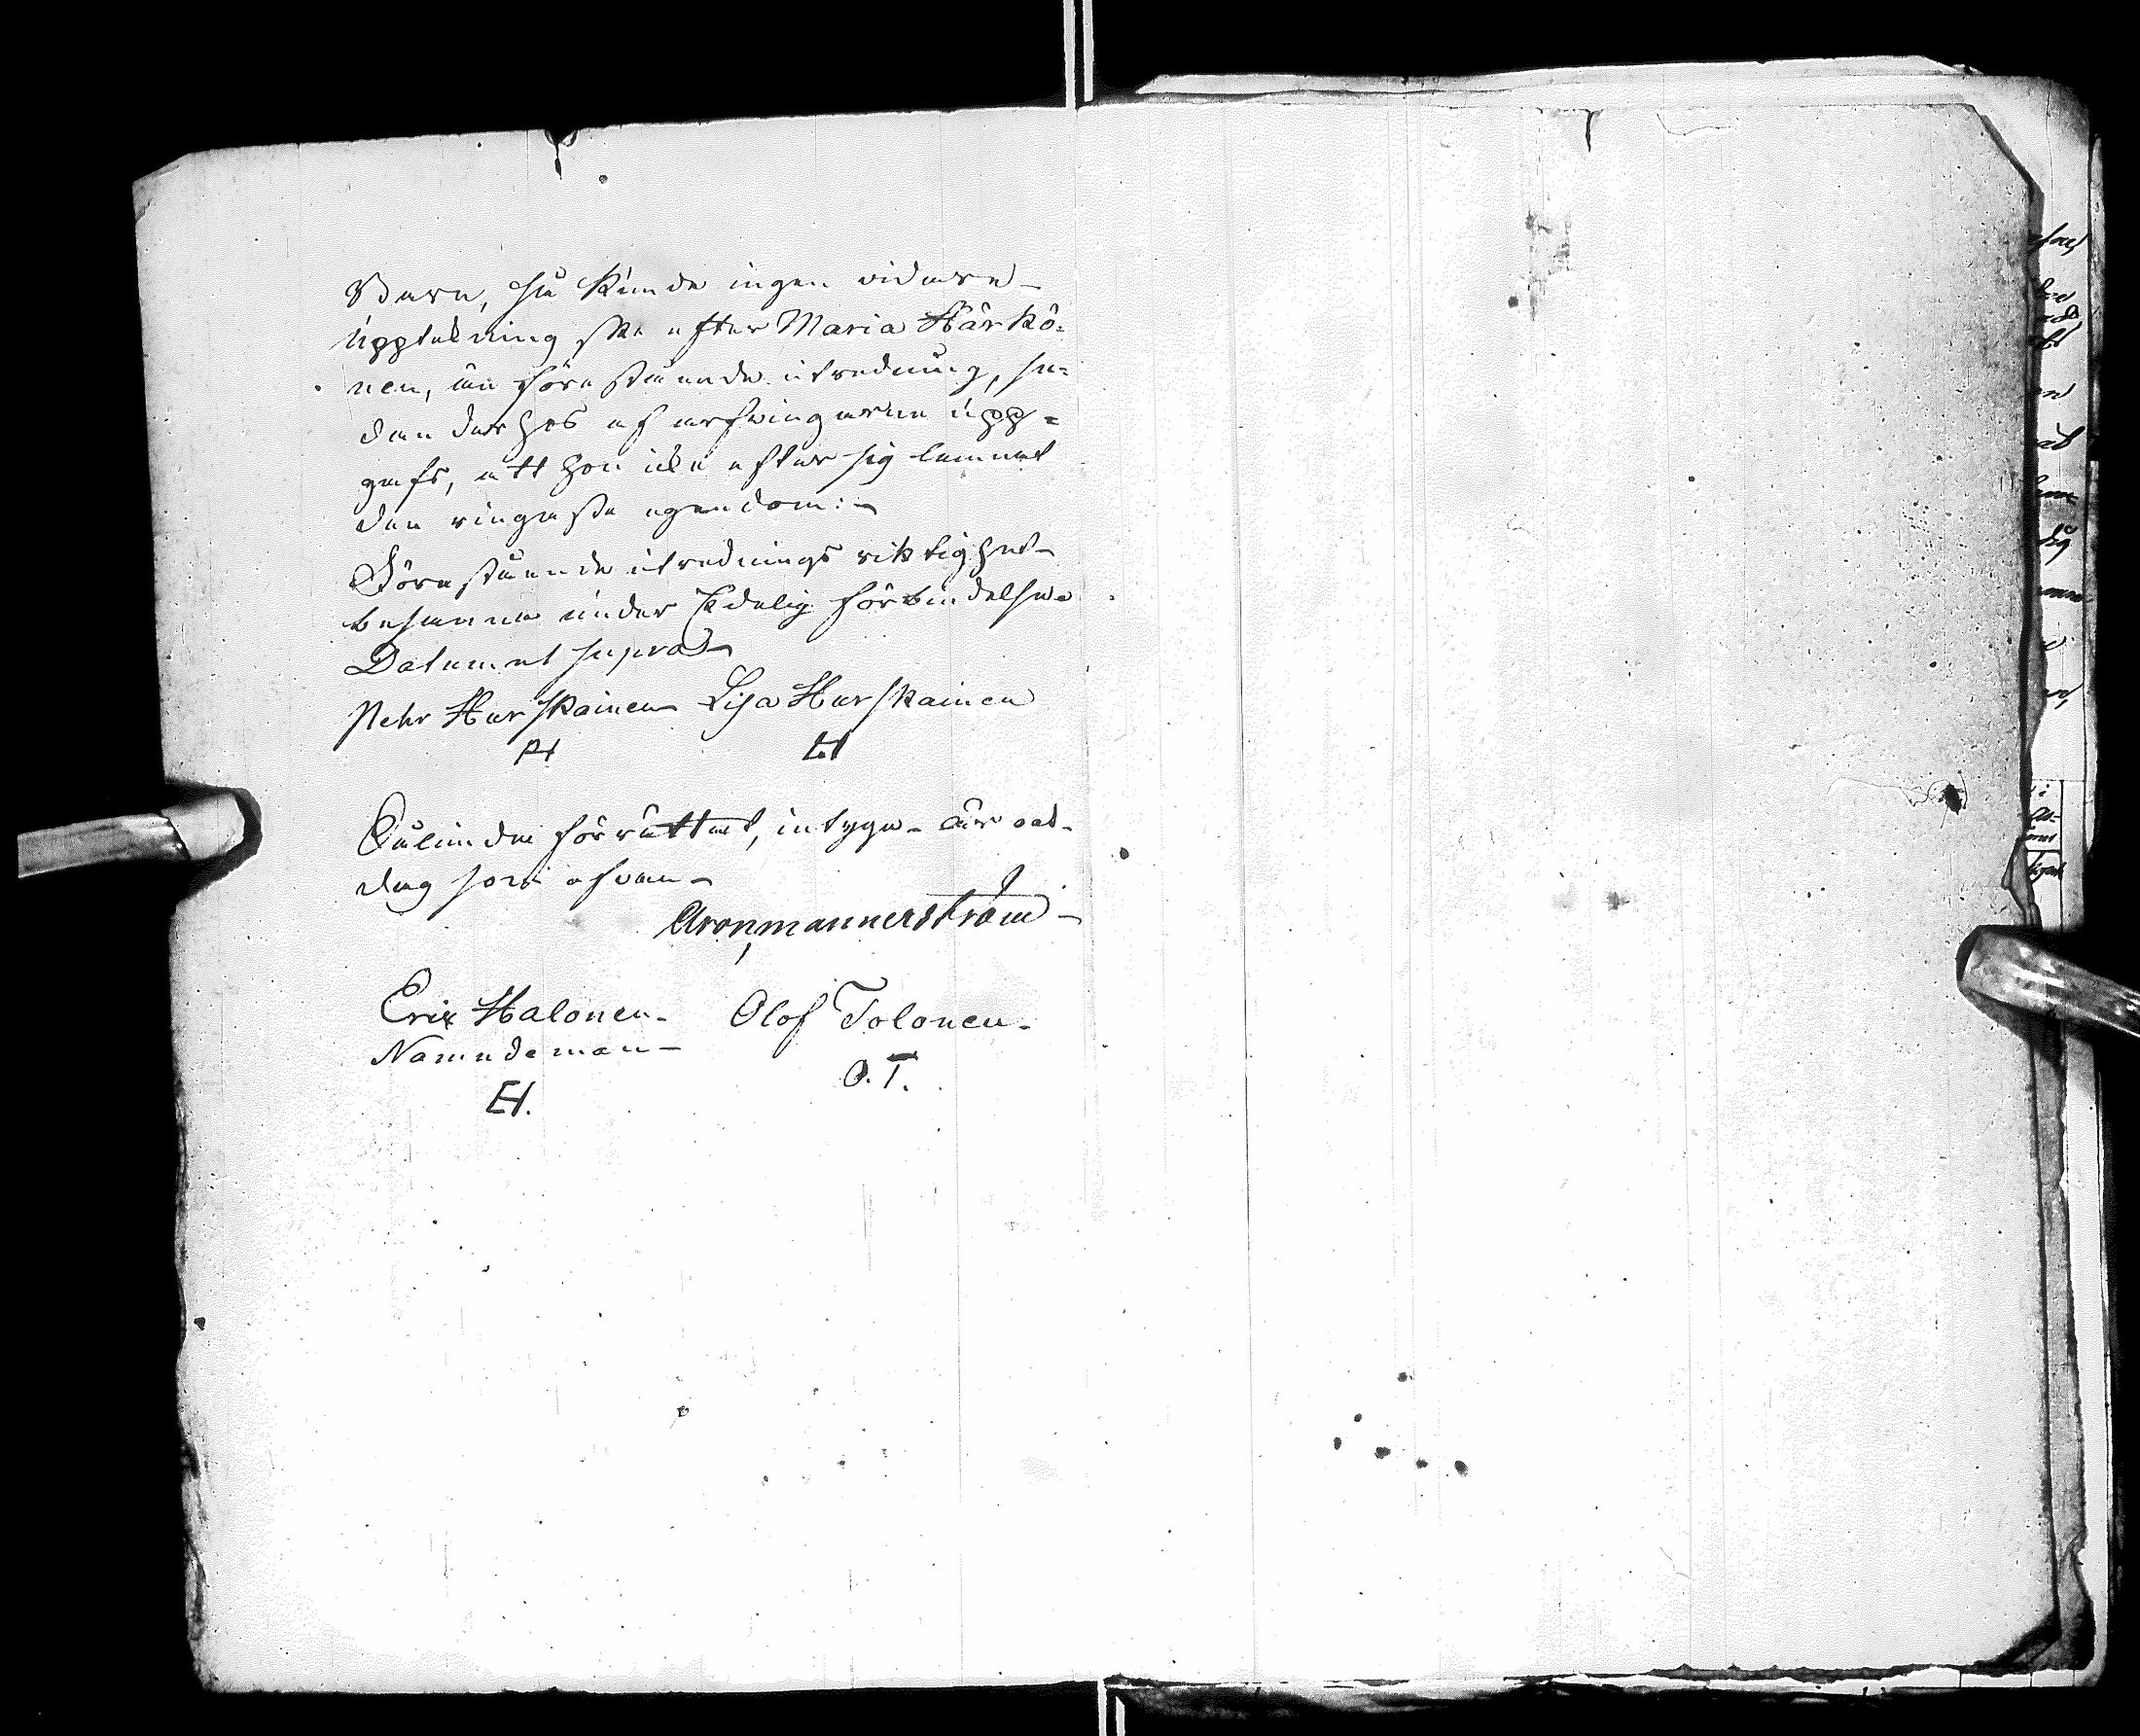 Barn, så kunde ingen vidare
uppteckning ske efter Maria Härkö-
nen, än förestående utredning, se-
dan derhos af arfvingarne upp-
gafs, att hon icke efter sig lemnat
den ringaste egendom:
Förestående utrednings riktighet
besanna under Edelig förbindelse
Datumet supra
Pehr Hurskainen Lisa Hurskainen
PH LH
Sålunda förrättat, intyga år och
dag som ofvan
Aron Mannerström
Eric Halonen Olof Tolonen
Nämndeman
O.T.
EH.